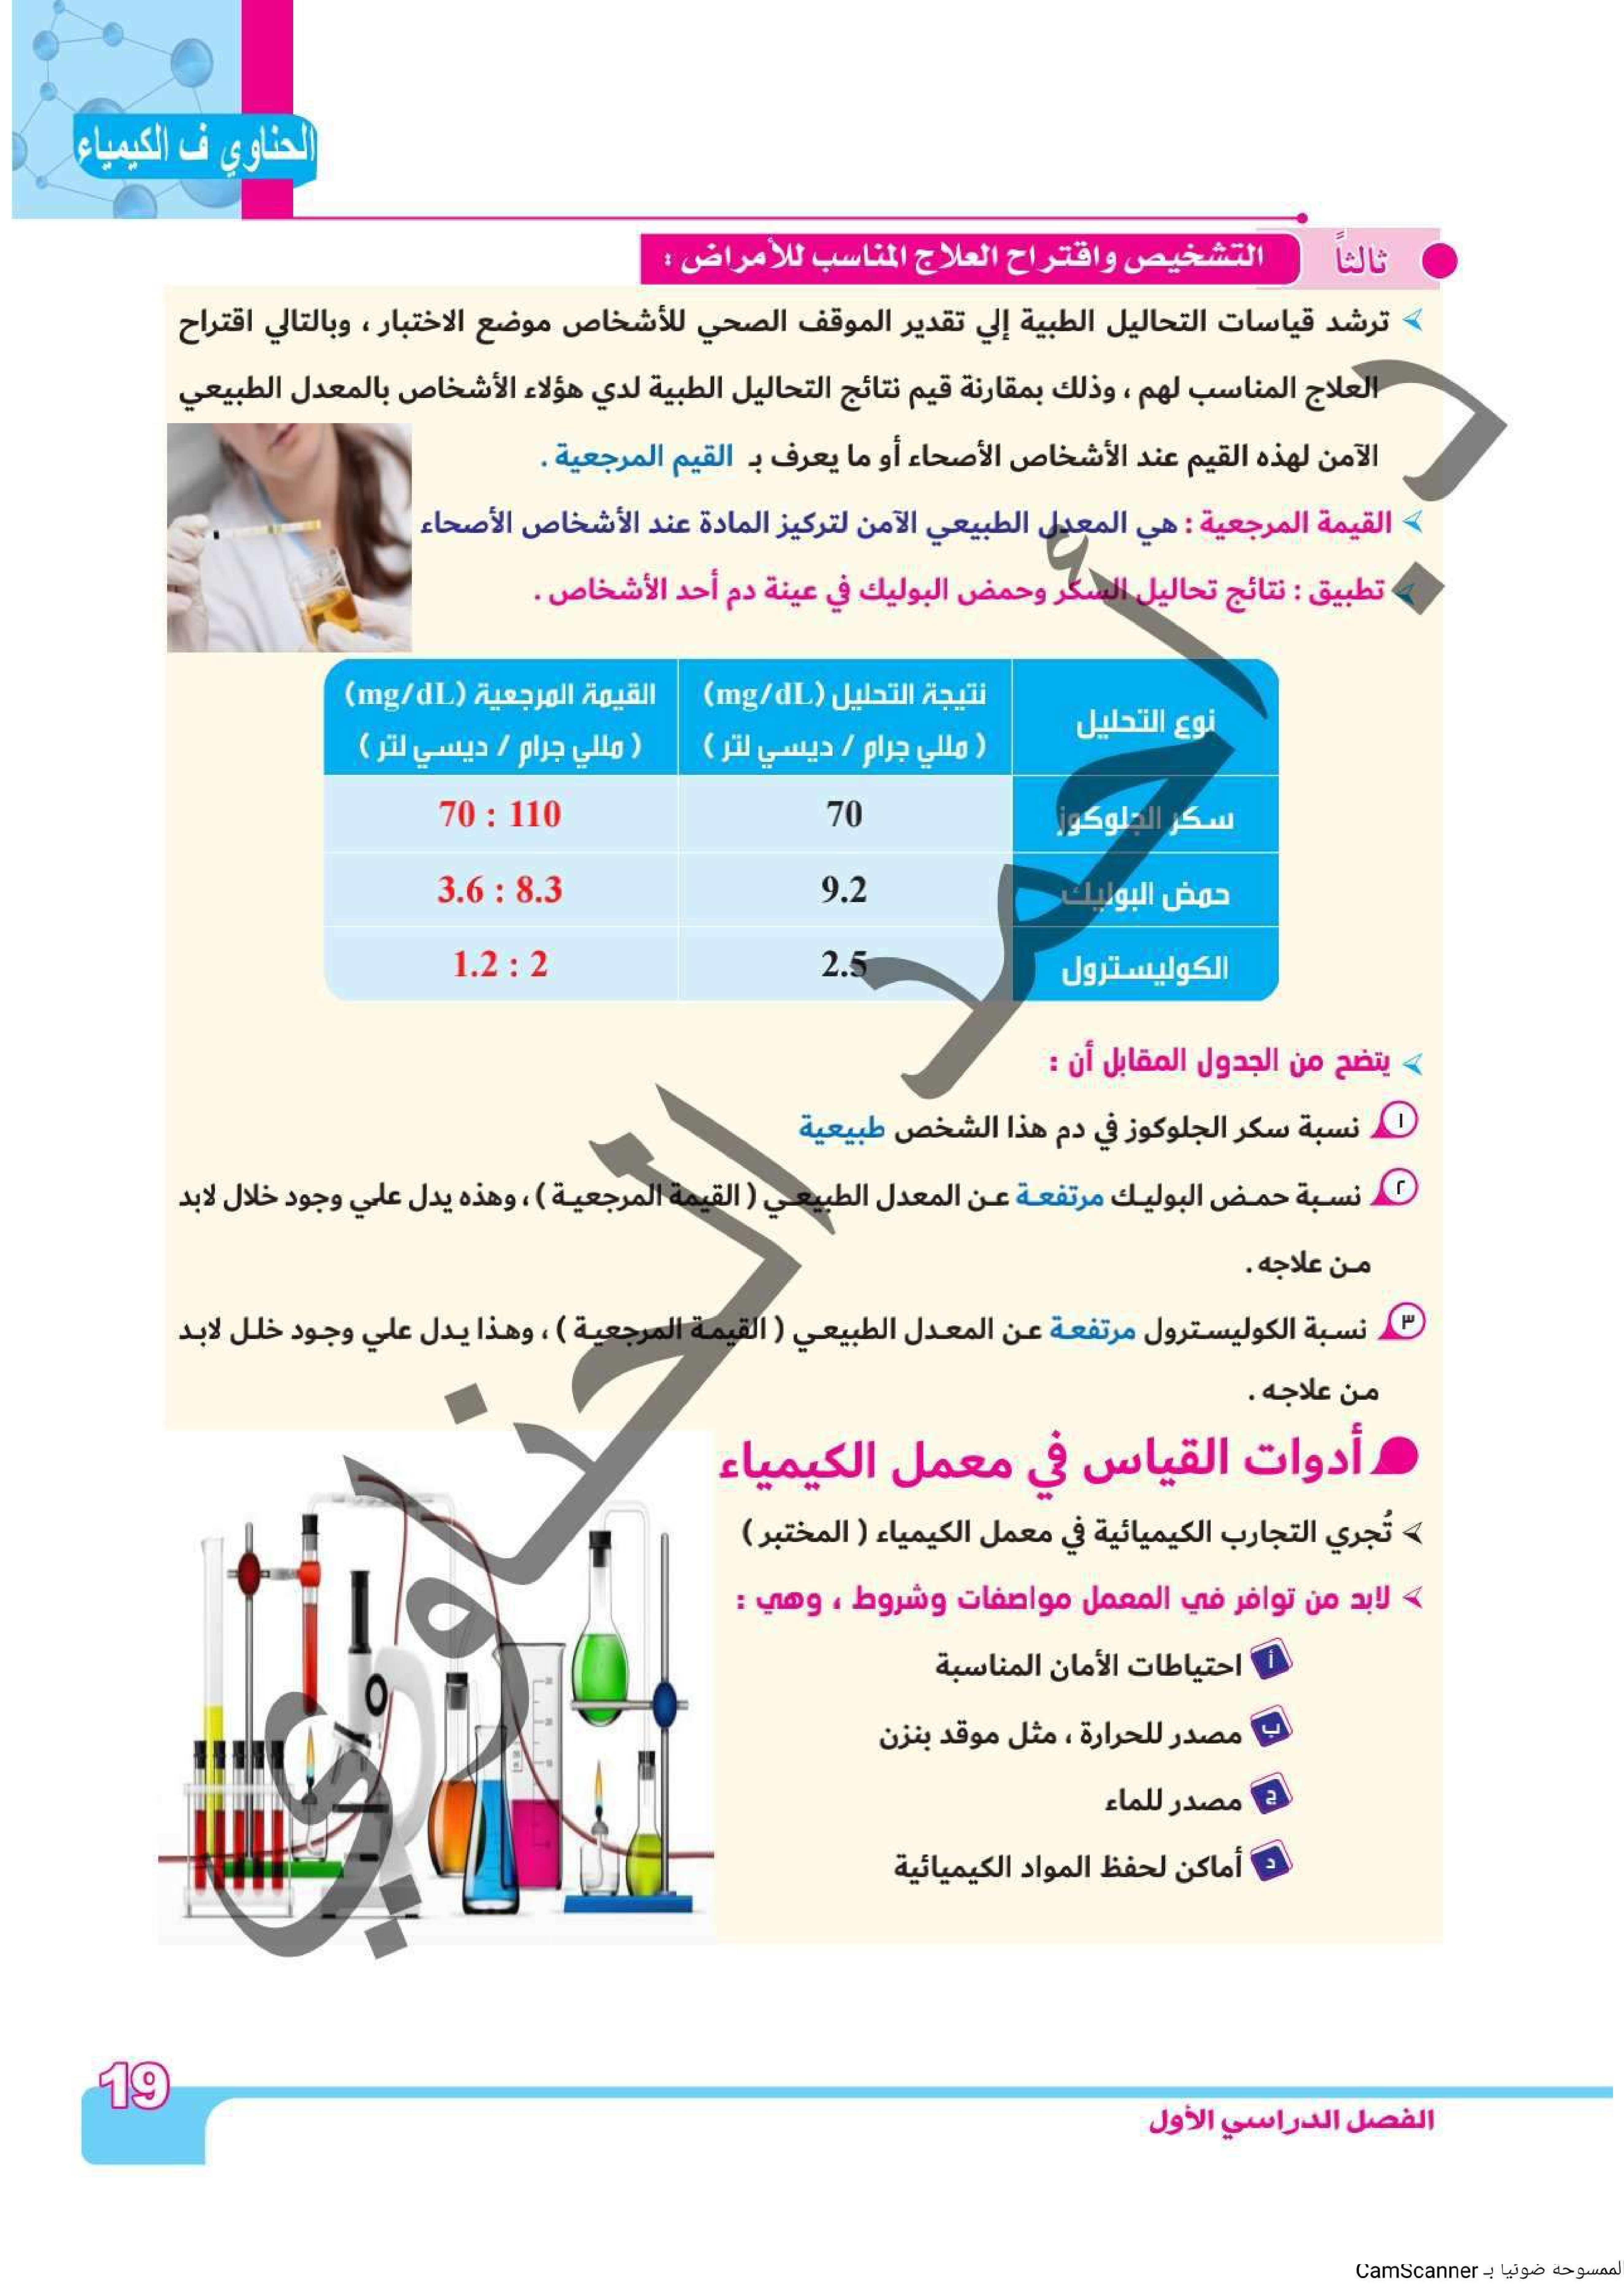 الحناوي ف الكيمياء
ثالثاً
التشخيص واقتراح العلاج المناسب للأمراض :
ترشد قياسات التحاليل الطبية إلي تقدير الموقف الصحي للأشخاص موضع الاختبار ، وبالتالي اقتراح
العلاج المناسب لهم ، وذلك بمقارنة قيم نتائج التحاليل الطبية لدي هؤلاء الأشخاص بالمعدل الطبيعي
الآمن لهذه القيم عند الأشخاص الأصحاء أو ما يعرف بـ القيم المرجعية .
القيمة المرجعية : هي المعدل الطبيعي الآمن لتركيز المادة عند الأشخاص الأصحاء
تطبيق : نتائج تحاليل السكر وحمض البوليك في عينة دم أحد الأشخاص .
نوع التحليل
نتيجة التحليل (mg/dL)
( مللي جرام / ديسي لتر )
القيمة المرجعية (mg/dL)
( مللي جرام / ديسي لتر )
سكر الجلوكوز 70 70 : 110
حمض البوليك 9.2 3.6 : 8.3
الكوليسترول 2.5 1.2 : 2
يتضح من الجدول المقابل أن :
١ نسبة سكر الجلوكوز في دم هذا الشخص طبيعية
٢ نسبة حمض البوليك مرتفعة عن المعدل الطبيعي ( القيمة المرجعية ) ، وهذه يدل علي وجود خلال لابد
من علاجه .
٣ نسبة الكوليسترول مرتفعة عن المعدل الطبيعي ( القيمة المرجعية ) ، وهذا يدل علي وجود خلل لابد
من علاجه .
أدوات القياس في معمل الكيمياء
تُجري التجارب الكيميائية في معمل الكيمياء ( المختبر )
لابد من توافر في المعمل مواصفات وشروط ، وهي :
أ احتياطات الأمان المناسبة
ب مصدر للحرارة ، مثل موقد بنزن
ج مصدر للماء
د أماكن لحفظ المواد الكيميائية
د . أحمد الحناوي
19
الفصل الدراسي الأول
لممسوحة ضوئيا بـ CamScanner